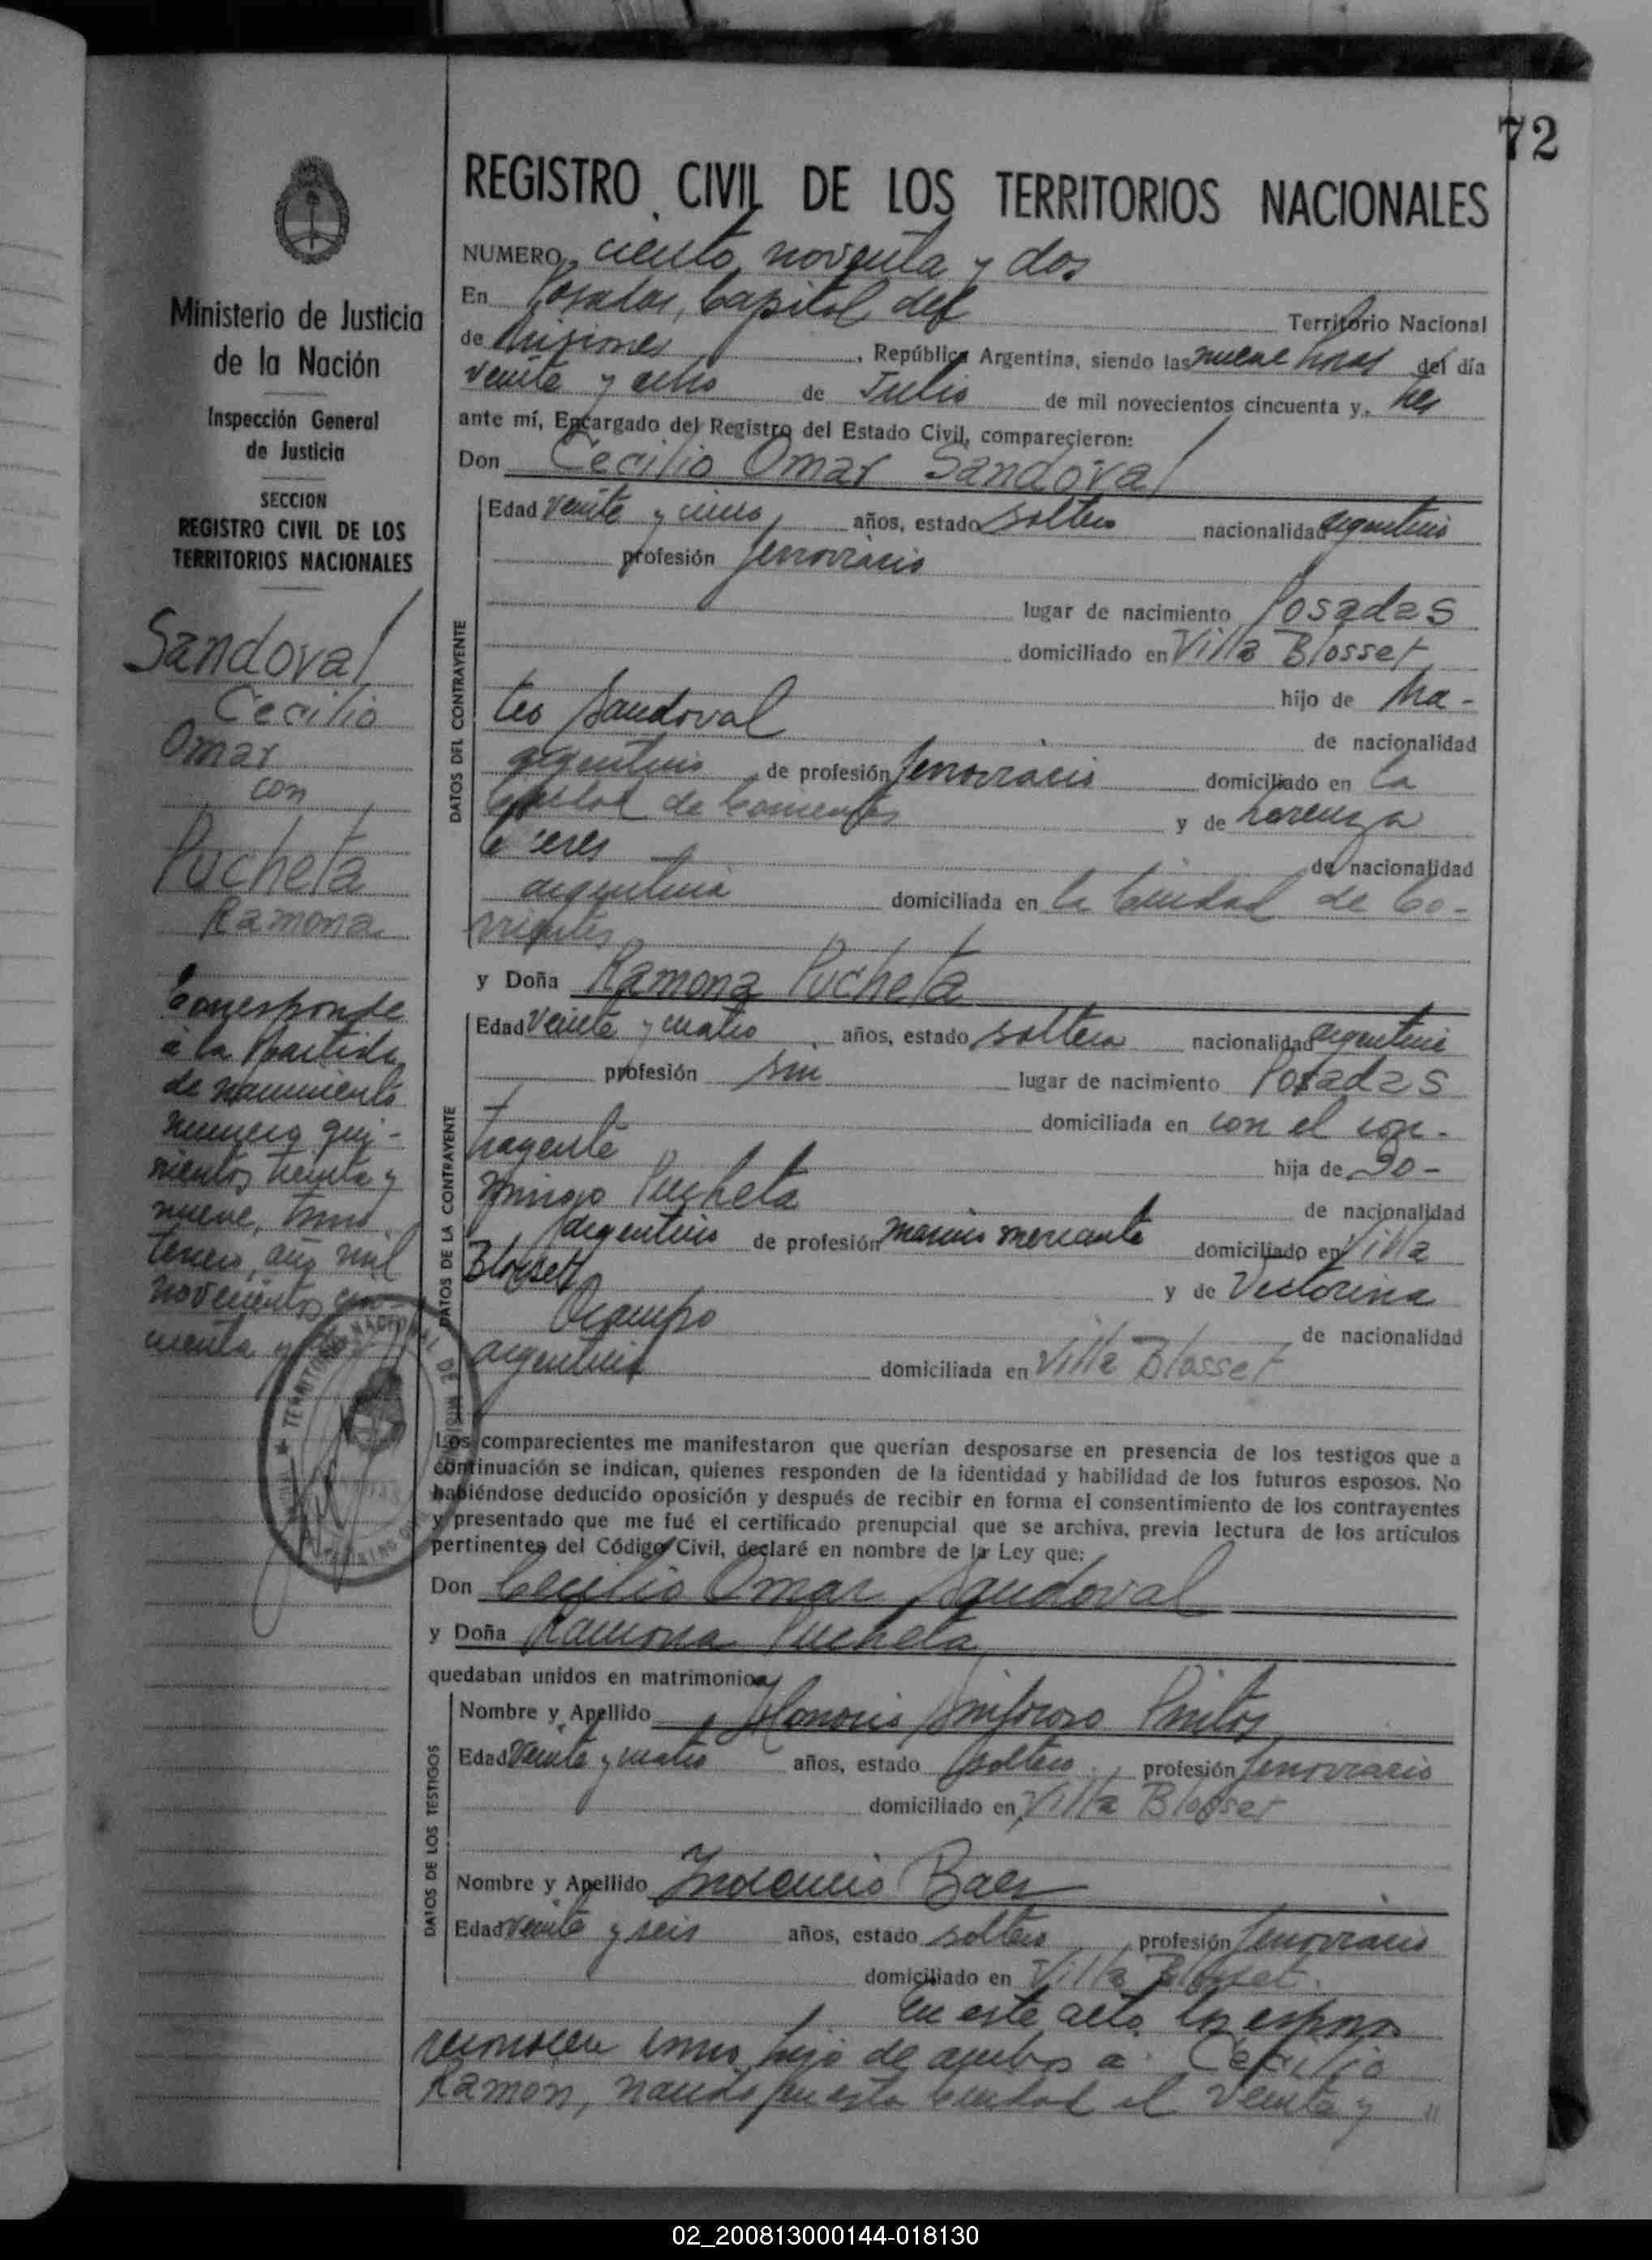 72
REGISTRO CIVIL DE LOS TERRITORIOS NACIONALES
NUMERO ciento noventa y dos
En Posadas, Capital del Territorio Nacional
de Misiones, República Argentina, siendo las nueve horas del día
veinte y ocho de Julio de mil novecientos cincuenta y tres
ante mí, Encargado del Registro del Estado Civil, comparecieron:
Don Cecilio Omar Sandoval
Edad veinte y cinco años, estado soltero nacionalidad argentino
profesión ferroviario
lugar de nacimiento Posadas
domiciliado en Villa Blosset
hijo de Ma-
teo Sandoval
de nacionalidad
argentino de profesión ferroviario domiciliado en la
Capital de Corrientes y de Lorenza
de nacionalidad
argentina domiciliada en la Ciudad de Co-
rrientes
y Doña Ramona Pucheta
Edad veinte y cuatro años, estado soltera nacionalidad argentina
profesión sin lugar de nacimiento Posadas
domiciliada en con el con-
trayente
hija de Do-
mingo Pucheta
de nacionalidad
argentino de profesión marino mercante domiciliado en Villa
Blosset
y de Victorina
Ocampo
de nacionalidad
argentina domiciliada en Villa Blosset
Los comparecientes me manifestaron que querían desposarse en presencia de los testigos que a
continuación se indican, quienes responden de la identidad y habilidad de los futuros esposos. No
habiéndose deducido oposición y después de recibir en forma el consentimiento de los contrayentes
y presentado que me fué el certificado prenupcial que se archiva, previa lectura de los artículos
pertinentes del Código Civil, declaré en nombre de la Ley que:
Don Cecilio Omar Sandoval
y Doña Ramona Pucheta
quedaban unidos en matrimonio
Nombre y Apellido Honorio Sinforoso Pintos
Edad veinte y cuatro años, estado soltero profesión ferroviario
domiciliado en Villa Blosset
Nombre y Apellido Inocencio Baez
Edad veinte y seis años, estado soltero profesión ferroviario
domiciliado en Villa Blosset.
En este acto los esposos
reconocen como hijo de ambos a Cecilio
Ramón, nacido en esta Ciudad el veinte y "
DATOS DEL CONTRAYENTE
DATOS DE LA CONTRAYENTE
DATOS DE LOS TESTIGOS
Ministerio de Justicia
de la Nación
Inspección General
de Justicia
SECCION
REGISTRO CIVIL DE LOS
TERRITORIOS NACIONALES
Sandoval
Cecilio
Omar
con
Pucheta
Ramona
Corresponde
a la Partida
de nacimiento
número qui-
nientos treinta y
nueve, tomo
tercero, año mil
novecientos cin-
cuenta y
02_200813000144-018130